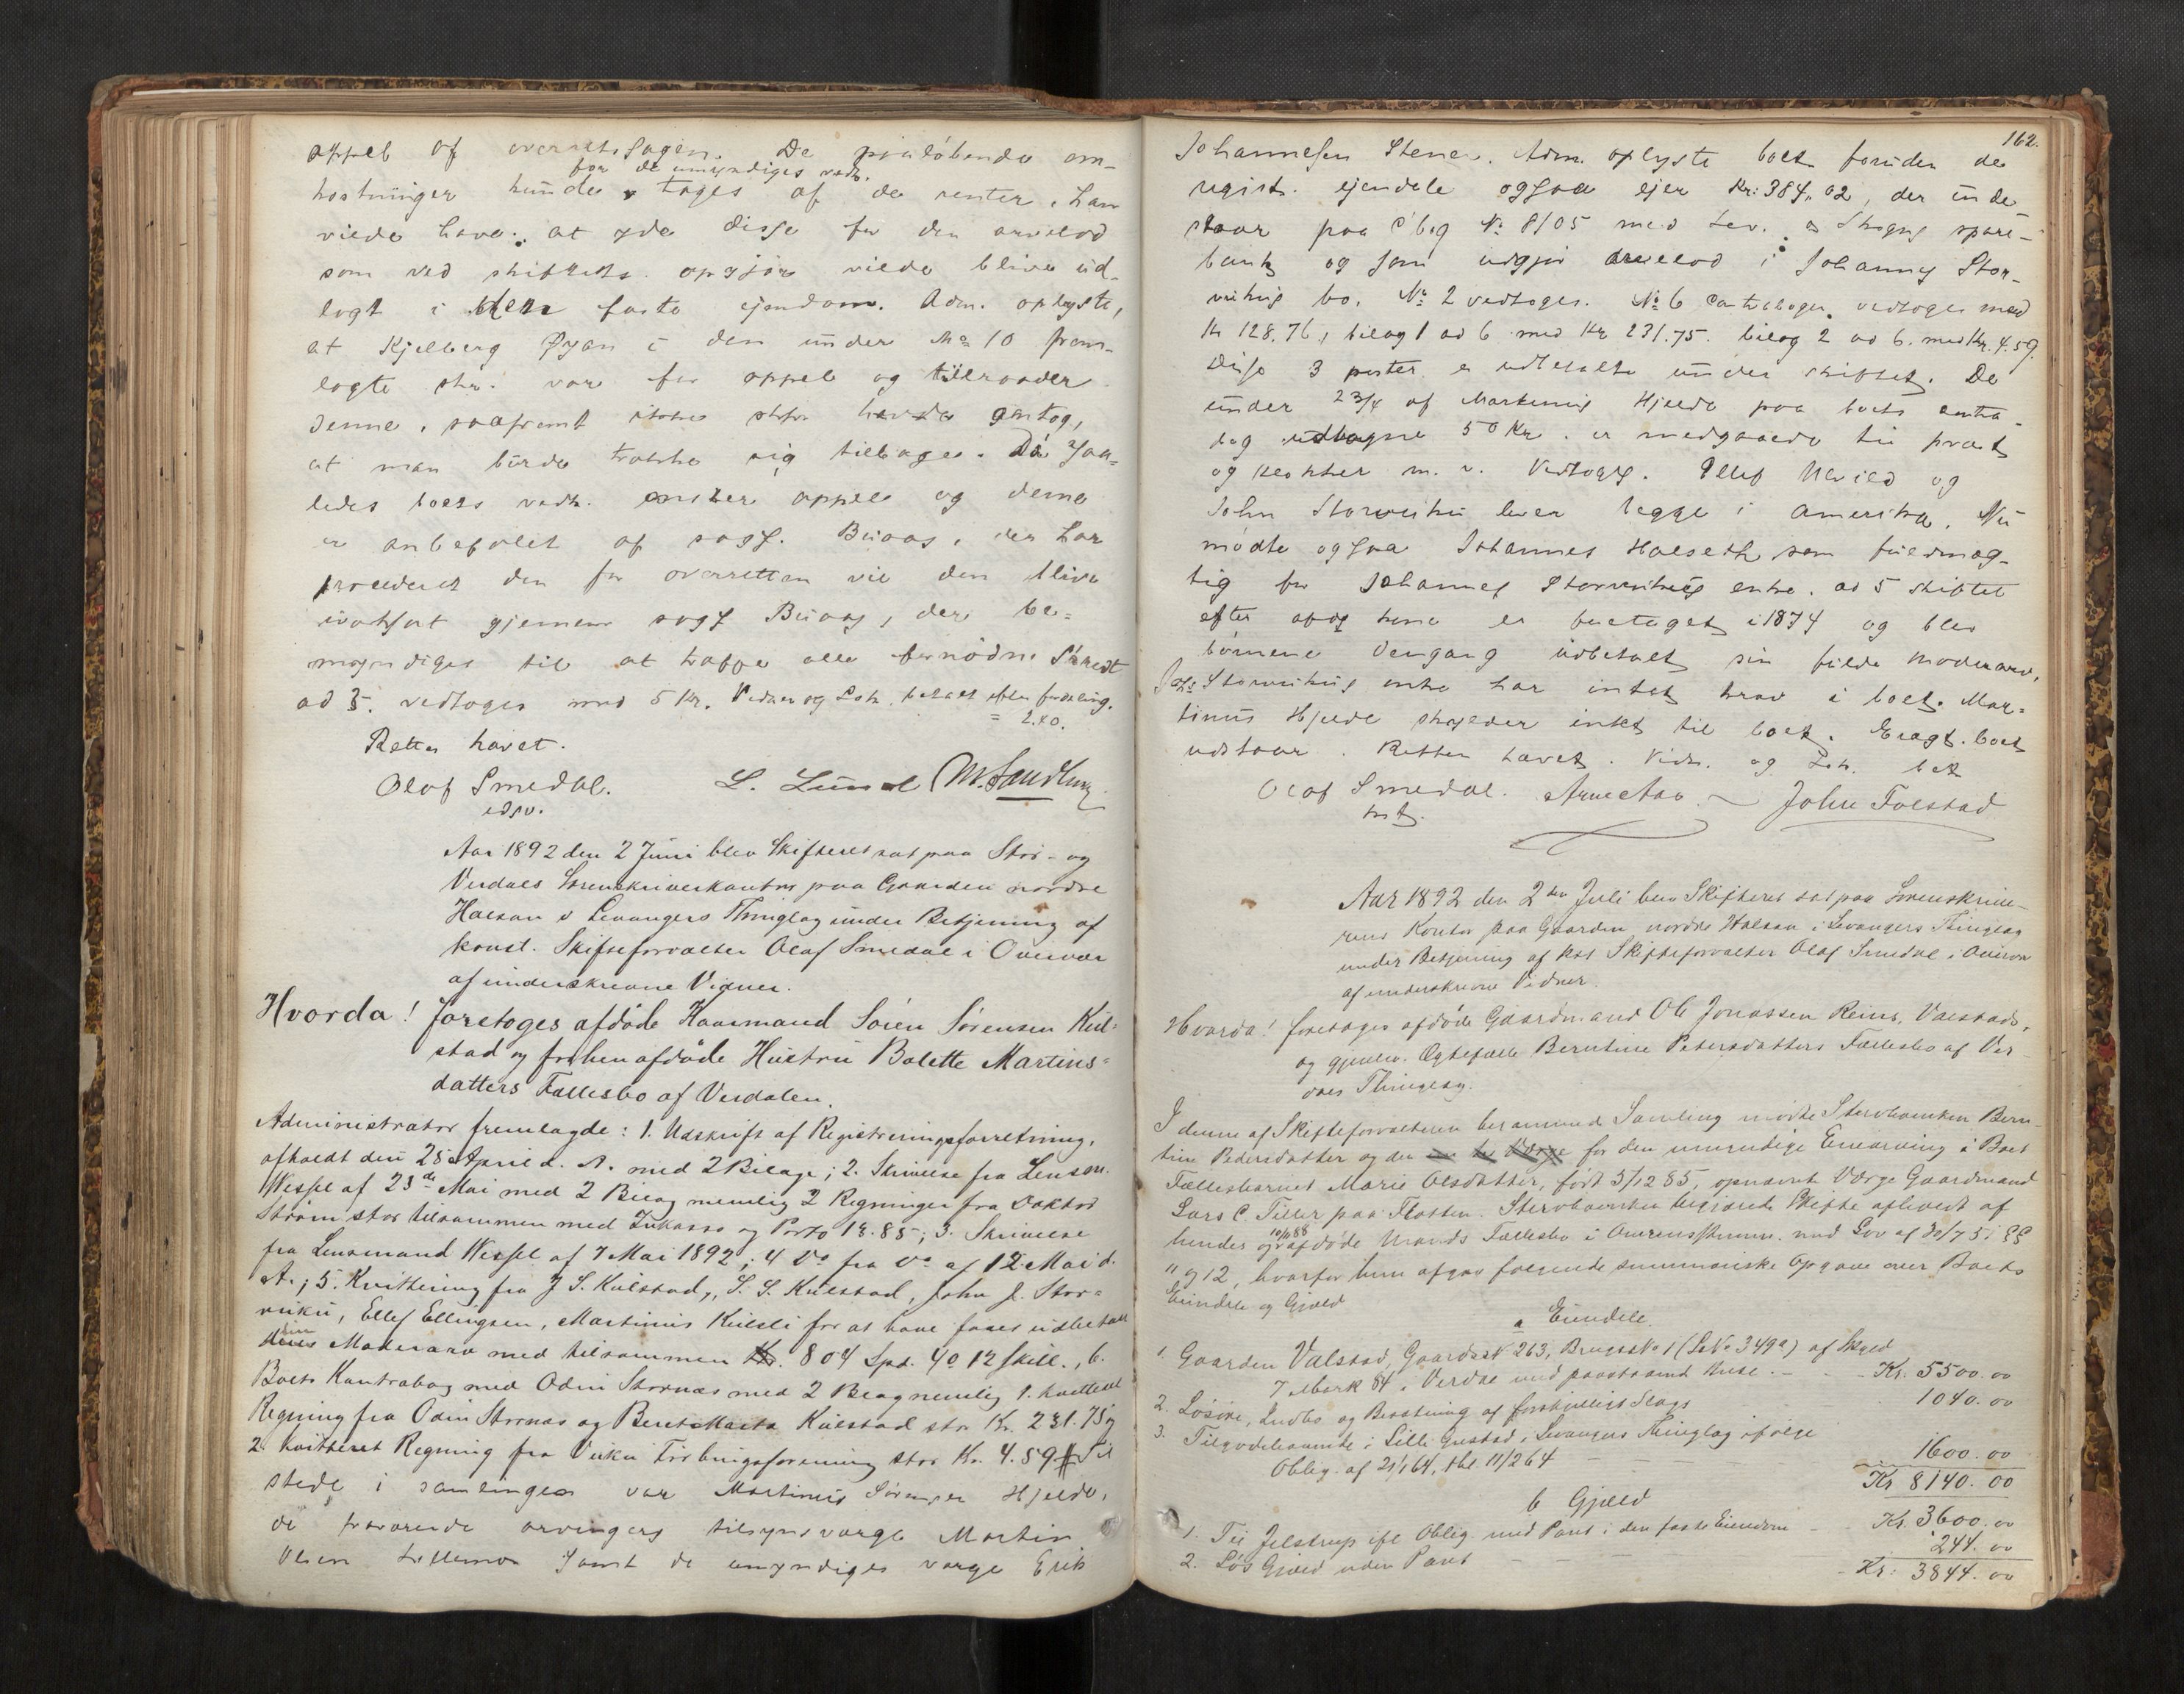 appel af overretssagen. De paaløbende om-
for de umyndiges vedk.
kostninger kunde tages af de renter, han
vilde have at yde disse for den arvelod
som ved skiftets opgjør vilde blive ud-
lagt i den faste ejendom. Adm. oplyste,
at Kjelberg Øgan i den under No 10 frem-
lagte skr. var for appel og tilraader
denne, saafremt ikke antog,
at man burde trække sig tilbage. Da saa-
ledes boets vedk. ønsker appel og denne
er anbefalet af sagf. Buaas, der har
procederet den for overretten vil den blive
iværksat gjennem sagf Buaas, der be-
myndiges til at træffe alle fornødne Skridt
ad 5. vedtoges med 5 Kr. Vidner og Loh. betalt efter fordeling.
= 2.40.
Retten hævet.
Olaf Smedal. L. Lund M. Sandberg
edsv.
Aar 1892 den 2 Juni blev Skifteret sat paa Stør- og
Værdals Sorenskriverkontor paa Gaarden nordre
Halsan i Levangers Thinglag under Betjening af
konst. Skifteforvalter Olaf Smedal i Overvær
af underskrevne Vidner.
Hvorda! foretoges afdøde Kaarmand Søren Sørensen Kul-
stad og forhen afdøde Hustru Bolette Martins-
datters Fællesbo af Verdalen.
Administrator fremlagde: 1. Udskrift af Registreringsforretning,
afholdt den 25 April d. A. med 2 Bilage; 2. Skrivelse fra Lensm.
Wessel af 23de Mai med 2 Bilag nemlig 2 Regninger fra Doktor
Strøm stor tilsammen med Inkasso og Porto 18.85; 3. Skrivelse
fra Lensmand Wessel af 7 Mai 1892; 4 Do fra Do af 12 Mai d.
A.; 5. Kvittering fra J S. Kulstad, S. S. Kulstad, John J. Stor-
vuku, Ellef Ellingsen, Martinus Kulsli for at have faaet udbetalt
sin
Moderarv med tilsammen 804 Spd. 4 12 skill., 6.
Boets Kontrabog med Odin Stornæs med 2 Bilag nemlig 1. kvitteret
Regning fra Odin Stornæs og Beret Marta Kulstad stor Kr. 231.75 og
2. kvitteret Regning fra Vuku Forbrugsforening stor Kr. 4.59. Til
stede i samlingen var Martinus Sørensen Hjelde,
de fraværende arvingers tilsynsværge Martin
Olsen Lillemo samt de umyndiges værge Erik
162.
Johannesen Stene. Adm. oplyste boet foruden de
regist. ejendele ogsaa ejer Kr: 384,02, der inde-
staar paa Cbog No 8105 med Lev. & Skogns spare-
bank og som udgjør arvelod i Johannes Stor-
vukus bo. No 2 vedtoges. No 6 Contrabogen vedtoges med
Kr 128.76, bilag 1 ad 6 med Kr 231.75. bilag 2 ad 6. med Kr. 4.59.
Disse 3 poster er udbetalte under skiftet. De
under 23/4 af Martinus Hjelde paa boets contra-
bog udtagne 50 Kr. er medgaaede til præst
og klokker m. v. Vedtoges. Ellef Ulvild og
John Storvuku lever begge i Amerika. Nu
mødte ogsaa Johannes Halseth som fuldmæg-
tig for Johannes Storvukus enke. ad 5 skiftet
efter afdg kone er foretaget i 1874 og blev
børnene dengang udbetalt sin fulde moderarv.
Johs Storvukus enke har intet krav i boet. Mar-
tinus Hjelde skylder intet til boet. Eragt. boet
udstaar. Retten hævet. Vidn. og Loh. bet
Olaf Smedal. Arne Aao John Folstad
kst.
Aar 1892 den 2den Juli blev Skifteret sat paa Sorenskrive-
rens Kontor paa Gaarden nordre Halsan i Levangers Thinglag
under Betjening af kst Skifteforvalter Olaf Smedal i Overvær
af underskrevne Vidner.
Hvorda! foretoges afdøde Gaardmand Ole Jonassen Reins, Valstads,
og gjenlev. Ægtefælle Berntine Petersdatters Fællesbo af Ver-
dals Thinglag.
I denne af Skifteforvalteren berammede Samling mødte Stervboenken Bern-
tine Pedersdatter og den for den umyndige Enearving i Boet
Fællesbarnet Marie Olsdatter, født 3/12 85, opnævnt Værge Gaardmand
Lars C. Tiller paa Floten. Stervboenken begjærede Skifte afholdt af
10/11 88
hendes og afdøde Mands Fællesbo i Overensstemm. med Lov af 30/7 51 §§
11 og 12, hvorfor hun afgav følgende summariske Opgave over Boets
Eiendele og Gjæld
a Eiendele.
1. Gaarden Valstad, Gaards No 263, Brugs No 1 (L No 349a) af Skyld
7 Mark 84 i Verdal med paastaaende Huse. - Kr. 5500.00
2. Løsøre, Indbo og Besætning af forskjelligt Slags 1040.00
3. Tilgodehavende i Lille Gustad, Levangers Thinglag ifølge
Oblig. af 21/1 64, thl. 11/2 64 - 1600.00
Kr 8140.00
b Gjæld
1. Til Jelstrup ifl Oblig. med Pant i den faste Eiendom - Kr. 3600.00
2. Løs Gjæld uden Pant 244.00
Kr: 3844.00